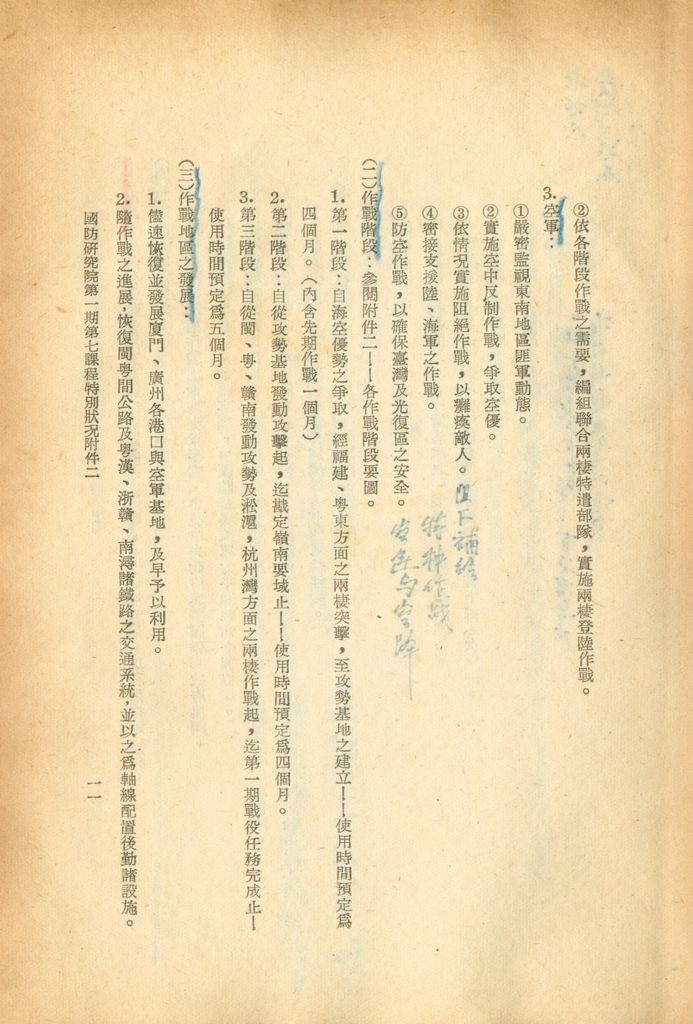 ②依各階段作戰之需要，編組聯合兩棲特遣部隊，實施兩棲登陸作戰。
3.空軍：
①嚴密監視東南地區匪軍動態。
②實施空中反制作戰，爭取空優。
③依情況實施阻絕作戰，以癱瘓敵人。
④密接支援陸、海軍之作戰。
特種作戰
⑤防空作戰，以確保臺灣及光復區之安全。
(二)作戰階段：參閱附件二——各作戰階段要圖。
1.第一階段：自海空優勢之爭取，經福建、粵東方面之兩棲突擊，至攻勢基地之建立——使用時間預定爲
四個月。（內含先期作戰一個月）
2.第二階段：自從攻勢基地發動攻擊起，迄戡定嶺南要域止——使用時間預定爲四個月。
3.第三階段：自從閩、粵、贛南發動攻勢及淞滬，杭州灣方面之兩棲作戰起，迄第一期戰役任務完成止—
使用時間預定爲五個月。
(三)作戰地區之發展：
1.儘速恢復並發展廈門、廣州各港口與空軍基地，及早予以利用。
2.隨作戰之進展，恢復閩粵間公路及粵漢、浙贛、南潯諸鐵路之交通系統，並以之爲軸線配置後勤諸設施。
國防研究院第一期第七課程特別狀況附件二
一一